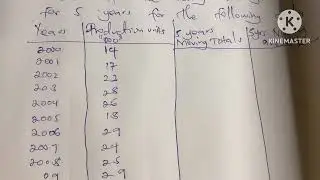 for 5 years for the following
KINEMASTER
Years Production units 5 years 5yrs
(000) Moving Totals
2000 14
2001 17
2002 23
2003 28
2004 26
2005 18
2006 29
2007 24
2008 25
09 29